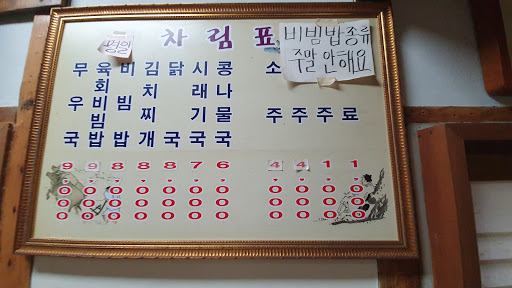 평일
차림표
비빔밥종류
주말 안해요
무우국
육회비빔밥
비빔밥
김치찌개
닭국
시래기국
콩나물국
소주
주
주
료
9.000
9.000
8.000
8.000
8.000
7.000
6.000
4.000
4.000
1.000
1.000